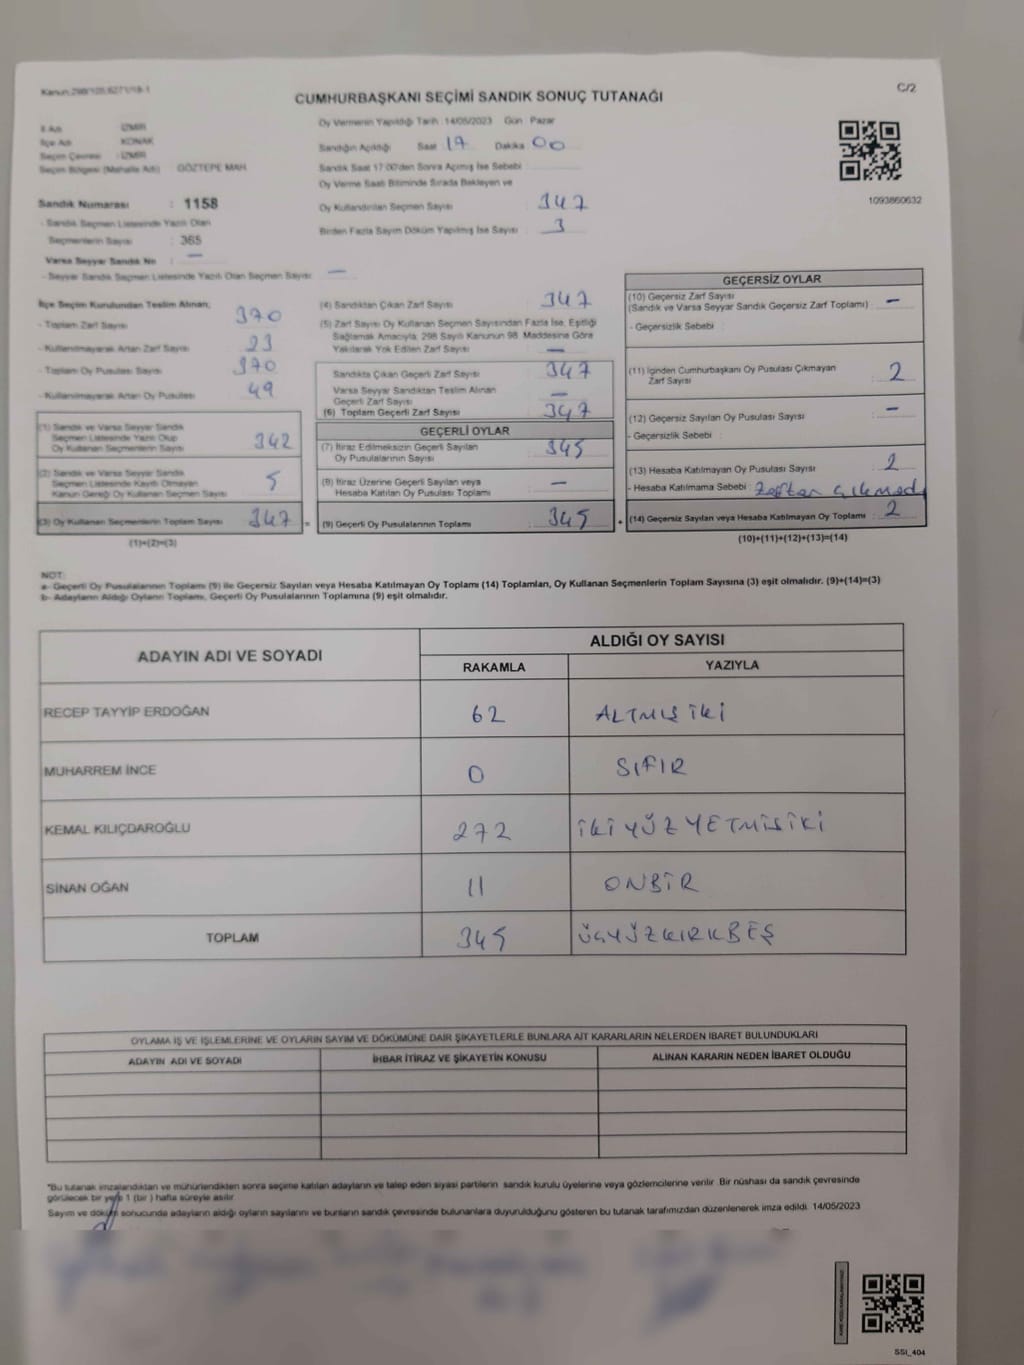 Kanun:298/105,6271/18-1
C/2
CUMHURBAŞKANI SEÇİMİ SANDIK SONUÇ TUTANAĞI
İl Adı : İZMİR
İlçe Adı : KONAK
Seçim Çevresi : İZMİR
Seçim Bölgesi (Mahalle Adı) : GÖZTEPE MAH.
Sandık Numarası : 1158
- Sandık Seçmen Listesinde Yazılı Olan
Seçmenlerin Sayısı : 365
Varsa Seyyar Sandık No : —
- Seyyar Sandık Seçmen Listesinde Yazılı Olan Seçmen Sayısı: —
Oy Vermenin Yapıldığı Tarih :14/05/2023 Gün : Pazar
Sandığın Açıldığı Saat : 17 Dakika : 00
Sandık Saat 17:00'den Sonra Açılmış İse Sebebi :
Oy Verme Saati Bitiminde Sırada Bekleyen ve
Oy Kullandırılan Seçmen Sayısı : 347
Birden Fazla Sayım Döküm Yapılmış İse Sayısı : 3
1093860632
İlçe Seçim Kurulundan Teslim Alınan;
- Toplam Zarf Sayısı : 370
- Kullanılmayarak Artan Zarf Sayısı : 23
- Toplam Oy Pusulası Sayısı : 370
- Kullanılmayarak Artan Oy Pusulası : 49
(1) Sandık ve Varsa Seyyar Sandık
Seçmen Listesinde Yazılı Olup
Oy Kullanan Seçmenlerin Sayısı : 342
(2) Sandık ve Varsa Seyyar Sandık
Seçmen Listesinde Kayıtlı Olmayan
Kanun Gereği Oy Kullanan Seçmen Sayısı : 5
(3) Oy Kullanan Seçmenlerin Toplam Sayısı : 347 =
(1)+(2)=(3)
(4) Sandıktan Çıkan Zarf Sayısı : 347
(5) Zarf Sayısı Oy Kullanan Seçmen Sayısından Fazla İse, Eşitliği
Sağlamak Amacıyla, 298 Sayılı Kanunun 98. Maddesine Göre
Yakılarak Yok Edilen Zarf Sayısı : —
Sandıkta Çıkan Geçerli Zarf Sayısı : 347
Varsa Seyyar Sandıktan Teslim Alınan
Geçerli Zarf Sayısı : —
(6) Toplam Geçerli Zarf Sayısı : 347
GEÇERLİ OYLAR
(7) İtiraz Edilmeksizin Geçerli Sayılan
Oy Pusulalarının Sayısı : 345
(8) İtiraz Üzerine Geçerli Sayılan veya
Hesaba Katılan Oy Pusulası Toplamı : —
(9) Geçerli Oy Pusulalarının Toplamı : 345 +
GEÇERSİZ OYLAR
(10) Geçersiz Zarf Sayısı
(Sandık ve Varsa Seyyar Sandık Geçersiz Zarf Toplamı) : —
- Geçersizlik Sebebi :
(11) İçinden Cumhurbaşkanı Oy Pusulası Çıkmayan
Zarf Sayısı : 2
(12) Geçersiz Sayılan Oy Pusulası Sayısı : —
- Geçersizlik Sebebi :
(13) Hesaba Katılmayan Oy Pusulası Sayısı : 2
- Hesaba Katılmama Sebebi : Zaftan çıkmadı
(14) Geçersiz Sayılan veya Hesaba Katılmayan Oy Toplamı : 2
(10)+(11)+(12)+(13)=(14)
NOT:
a- Geçerli Oy Pusulalarının Toplamı (9) ile Geçersiz Sayılan veya Hesaba Katılmayan Oy Toplamı (14) Toplamları, Oy Kullanan Seçmenlerin Toplam Sayısına (3) eşit olmalıdır. (9)+(14)=(3)
b- Adayların Aldığı Oyların Toplamı, Geçerli Oy Pusulalarının Toplamına (9) eşit olmalıdır.
ADAYIN ADI VE SOYADI
ALDIĞI OY SAYISI
RAKAMLA YAZIYLA
RECEP TAYYİP ERDOĞAN 62 ALTMIŞ İKİ
MUHARREM İNCE 0 SIFIR
KEMAL KILIÇDAROĞLU 272 İKİYÜZYETMİŞİKİ
SİNAN OĞAN 11 ONBİR
TOPLAM 345 ÜÇYÜZKIRKBEŞ
OYLAMA İŞ VE İŞLEMLERİNE VE OYLARIN SAYIM VE DÖKÜMÜNE DAİR ŞİKAYETLERLE BUNLARA AİT KARARLARIN NELERDEN İBARET BULUNDUKLARI
ADAYIN ADI VE SOYADI İHBAR İTİRAZ VE ŞİKAYETİN KONUSU ALINAN KARARIN NEDEN İBARET OLDUĞU
"Bu tutanak imzalandıktan ve mühürlendikten sonra seçime katılan adayların ve talep eden siyasi partilerin sandık kurulu üyelerine veya gözlemcilerine verilir. Bir nüshası da sandık çevresinde
görülecek bir yere 1 (bir ) hafta süreyle asılır.
Sayım ve döküm sonucunda adayların aldığı oyların sayılarını ve bunların sandık çevresinde bulunanlara duyurulduğunu gösteren bu tutanak tarafımızdan düzenlenerek imza edildi. 14/05/2023
SSİ_404